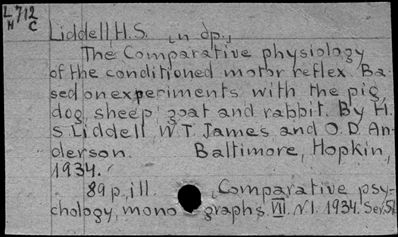 L 712
H C
Liddell, H.S. [in dp.]
The Comparative physiology
of the conditioned motor reflex. Ba-
sed on experiments with the pig,
dog, sheep, goat and rabbit. By H.
S. Liddell W.T. James and O.D. An-
derson. Baltimore, Hopkin,
1934.
89 p., ill. Comparative psy-
chology, monographs. VII. N 1. 1934. Ser.